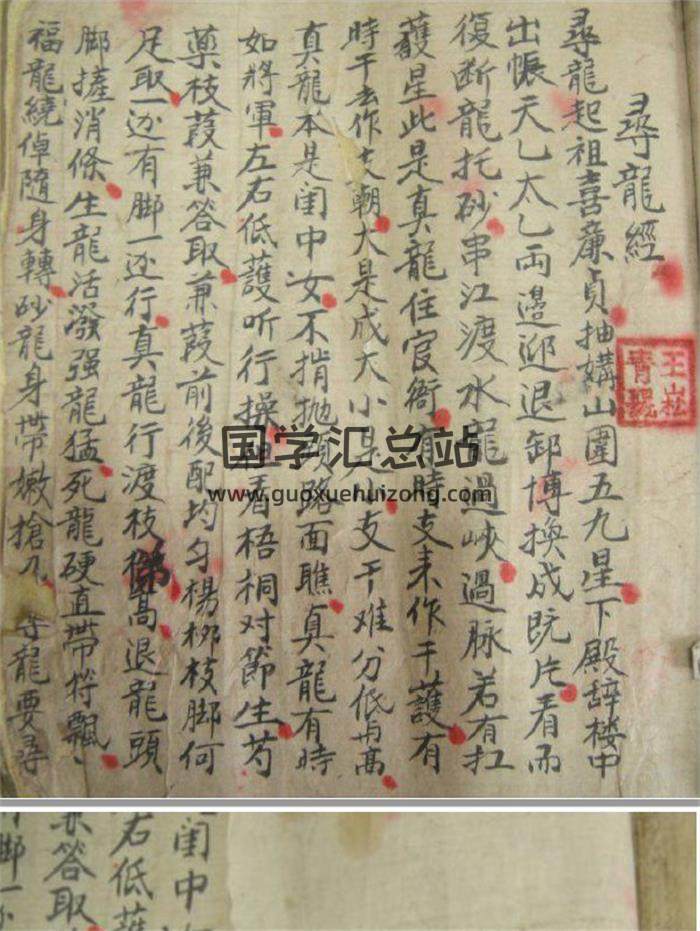 尋龍經
尋龍起祖喜廉貞抽媾山圍五九星下殿辞楼中
出帳天乙太乙両邉迎退卸博換成既片看而
復断龍托砂串江渡水龍過峡過脉若有扛
護星此是真龍住官衙有時支来作干護有
時干去作支朝大是成大小是小支干难分低与高
真龍本是闺中女不掯抛頭路面瞧真龍有時
如將軍左右低護听行操看梧桐对節生芍
藥枝葭蒹答取蒹葭前後配均匀楊柳枝脚何
足取一边有脚一边行真龍行渡枝高退龍頭
脚搓消條生龍活潑强龍猛死龍硬直帶符飄
福龍繞倬隨身轉砂龍身帶嫩搶刀 尋龍要尋
王崧
国学汇总站
www.guoxuehuizong.com
闺中
右低護
蒹答取
脚一